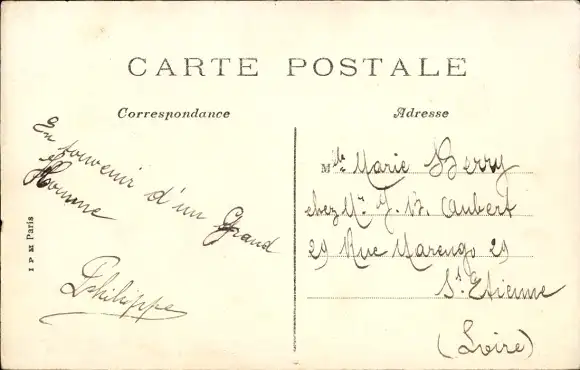 CARTE POSTALE
Correspondance
Adresse
En souvenir d'un Grand
Homme
Philippe
Mlle Marie Berry
chez Mr J. B. Aubert
29 Rue Marengo 29
St. Etienne
(Loire)
I P M Paris